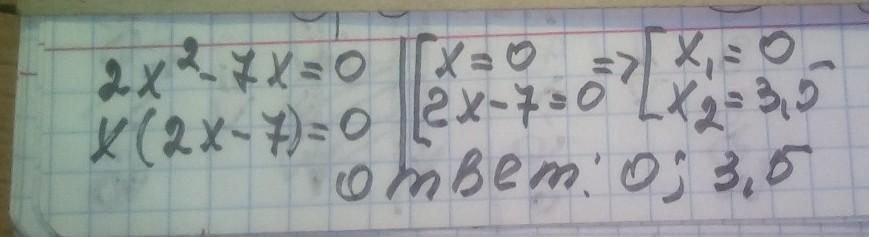 2x² - 7x = 0
x(2x - 7) = 0
[x = 0
[2x - 7 = 0 => [x₁ = 0
[x₂ = 3,5
Ответ: 0; 3,5